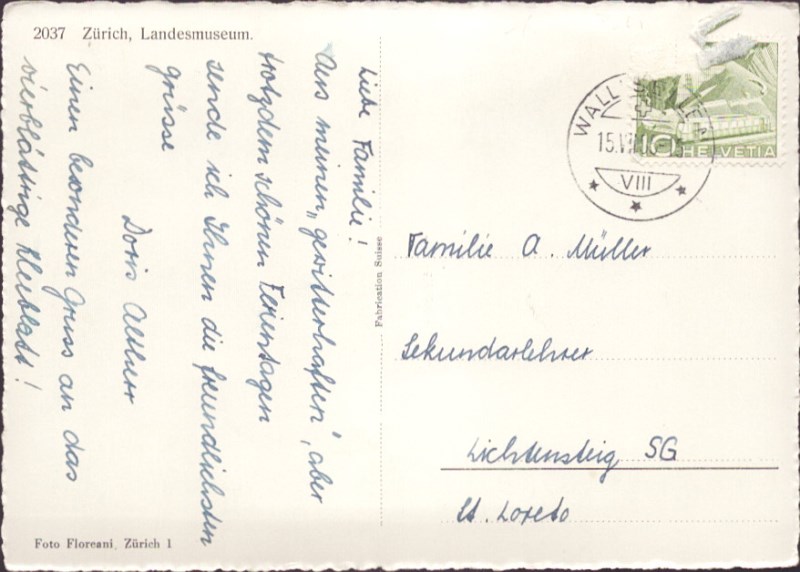 2037 Zürich, Landesmuseum.
Liebe Familie!
Aus meinen „gewitterhaften", aber
trotzdem schönen Ferientagen
sende ich Ihnen die freundlichsten
Grüsse
Doris
Einen besonderen Gruss an das
vierblättrige Kleeblatt!
Fabrication Suisse
VIII
10
HELVETIA
Familie A. Müller
Sekundarlehrer
Lichtensteig SG
St. Loreto
Foto Floreani, Zürich 1